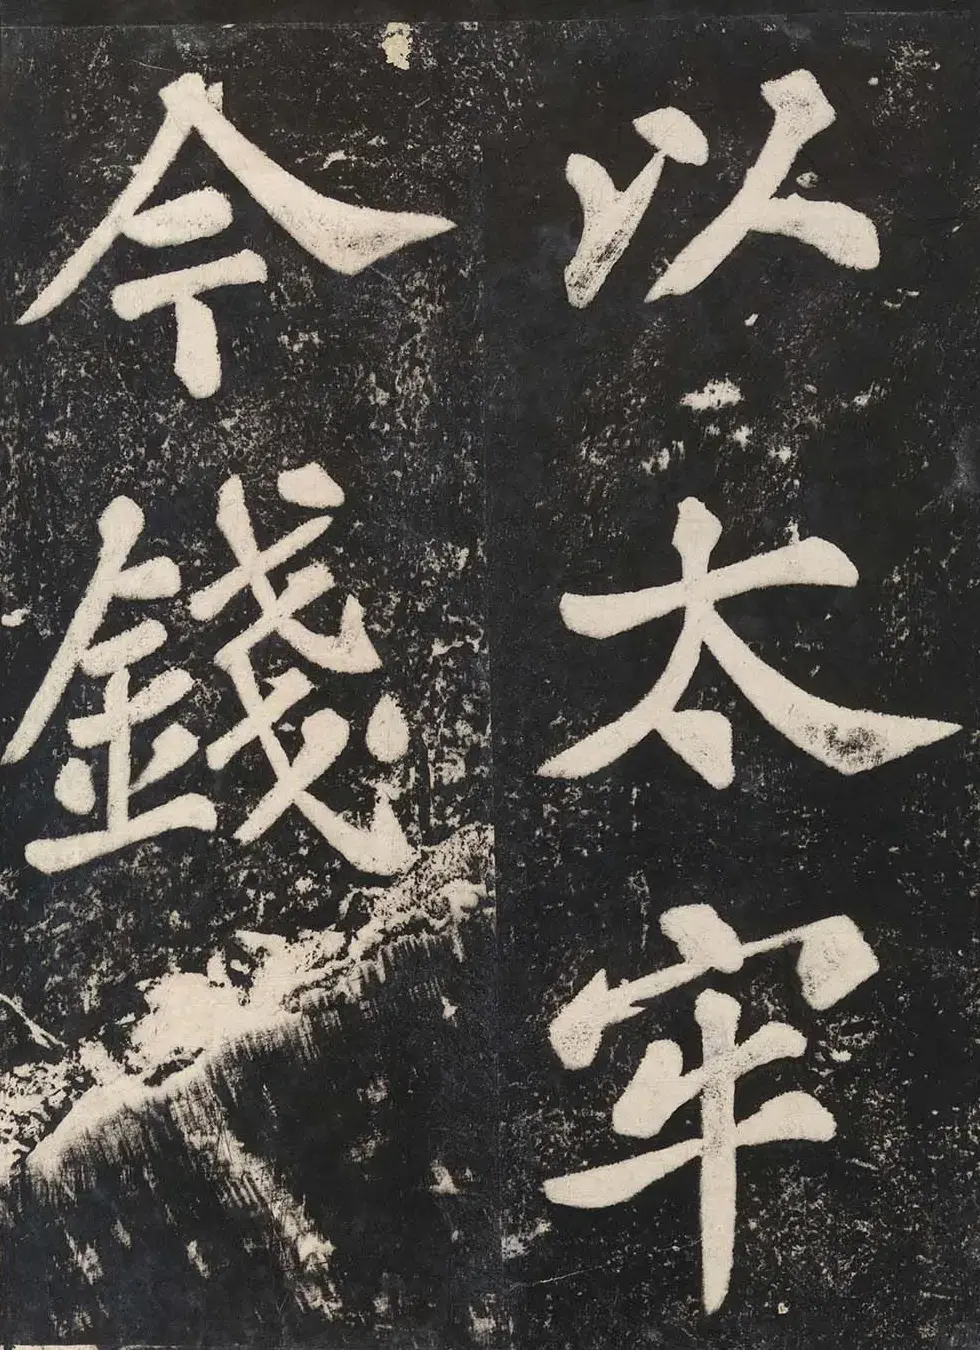 以太牢
今錢